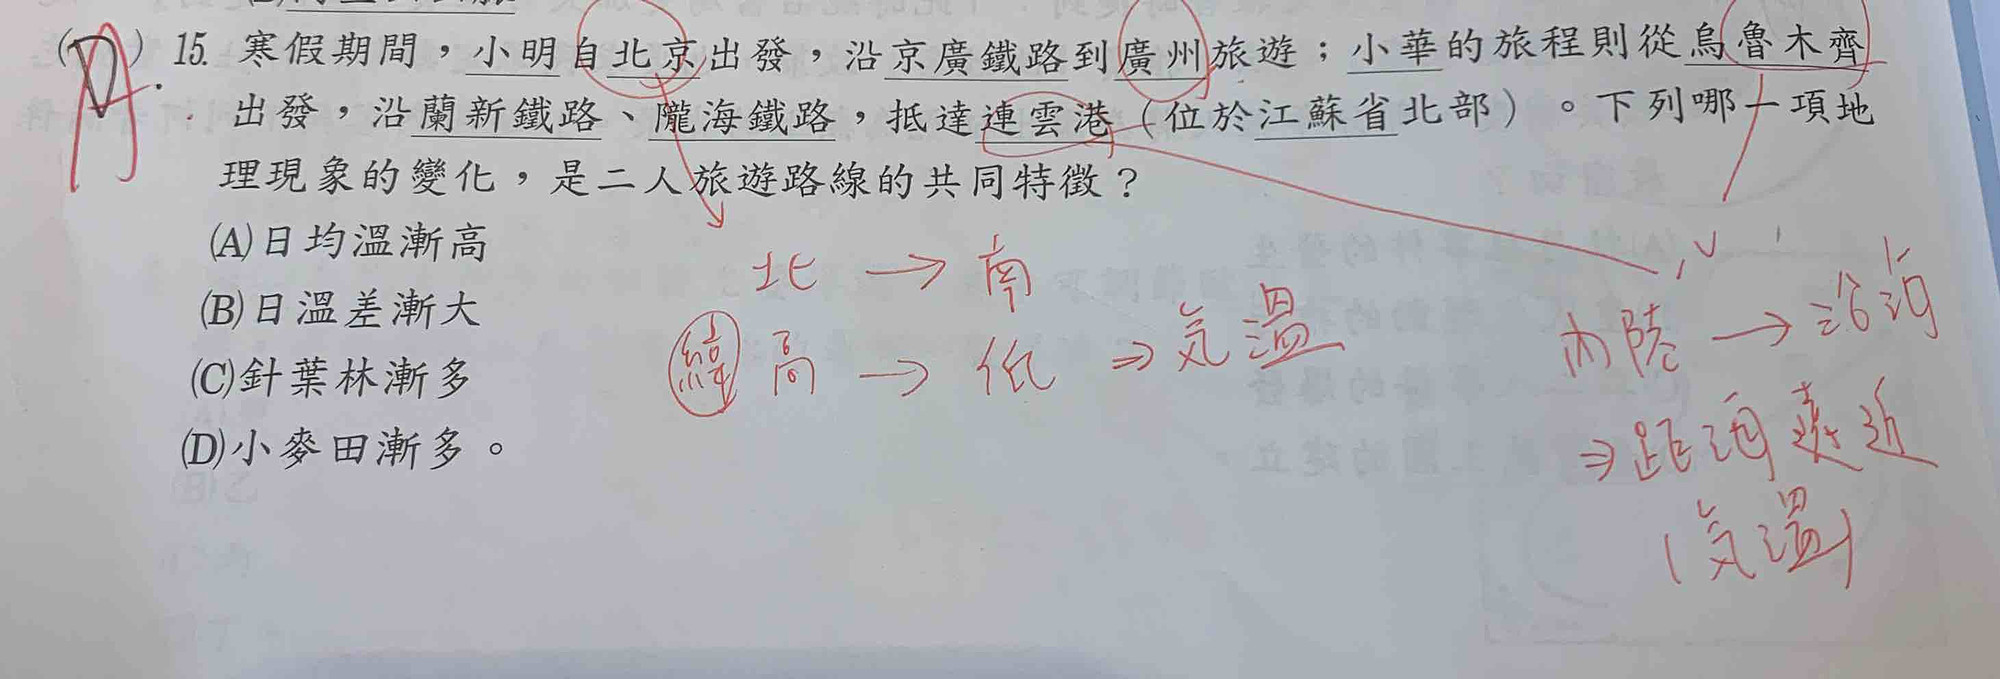 (D) 15. 寒假期間，小明自北京出發，沿京廣鐵路到廣州旅遊；小華的旅程則從烏魯木齊
A
出發，沿蘭新鐵路、隴海鐵路，抵達連雲港（位於江蘇省北部）。下列哪一項地
理現象的變化，是二人旅遊路線的共同特徵？
(A)日均溫漸高
(B)日溫差漸大
(C)針葉林漸多
(D)小麥田漸多。
北 → 南
緯 高 → 低 ⇒ 気温
內陸 → 沿海
⇒ 距海遠近
(気温)